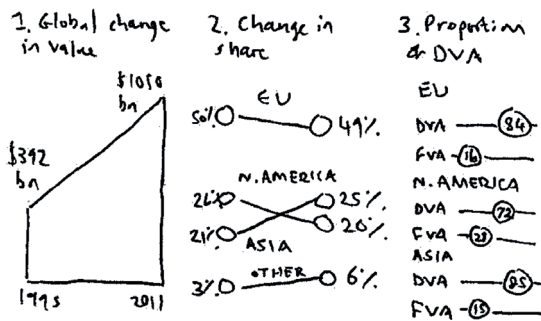 1. Global change
in value
$1050
bn
$392
bn
1995
2011
2. Change in
share
EU
50%
49%
N. AMERICA
26%
25%
21%
20%
ASIA
OTHER
3%
6%
3. Proportion
of DVA
EU
DVA 84
FVA 16
N. AMERICA
DVA 72
FVA 28
ASIA
DVA 85
FVA 15